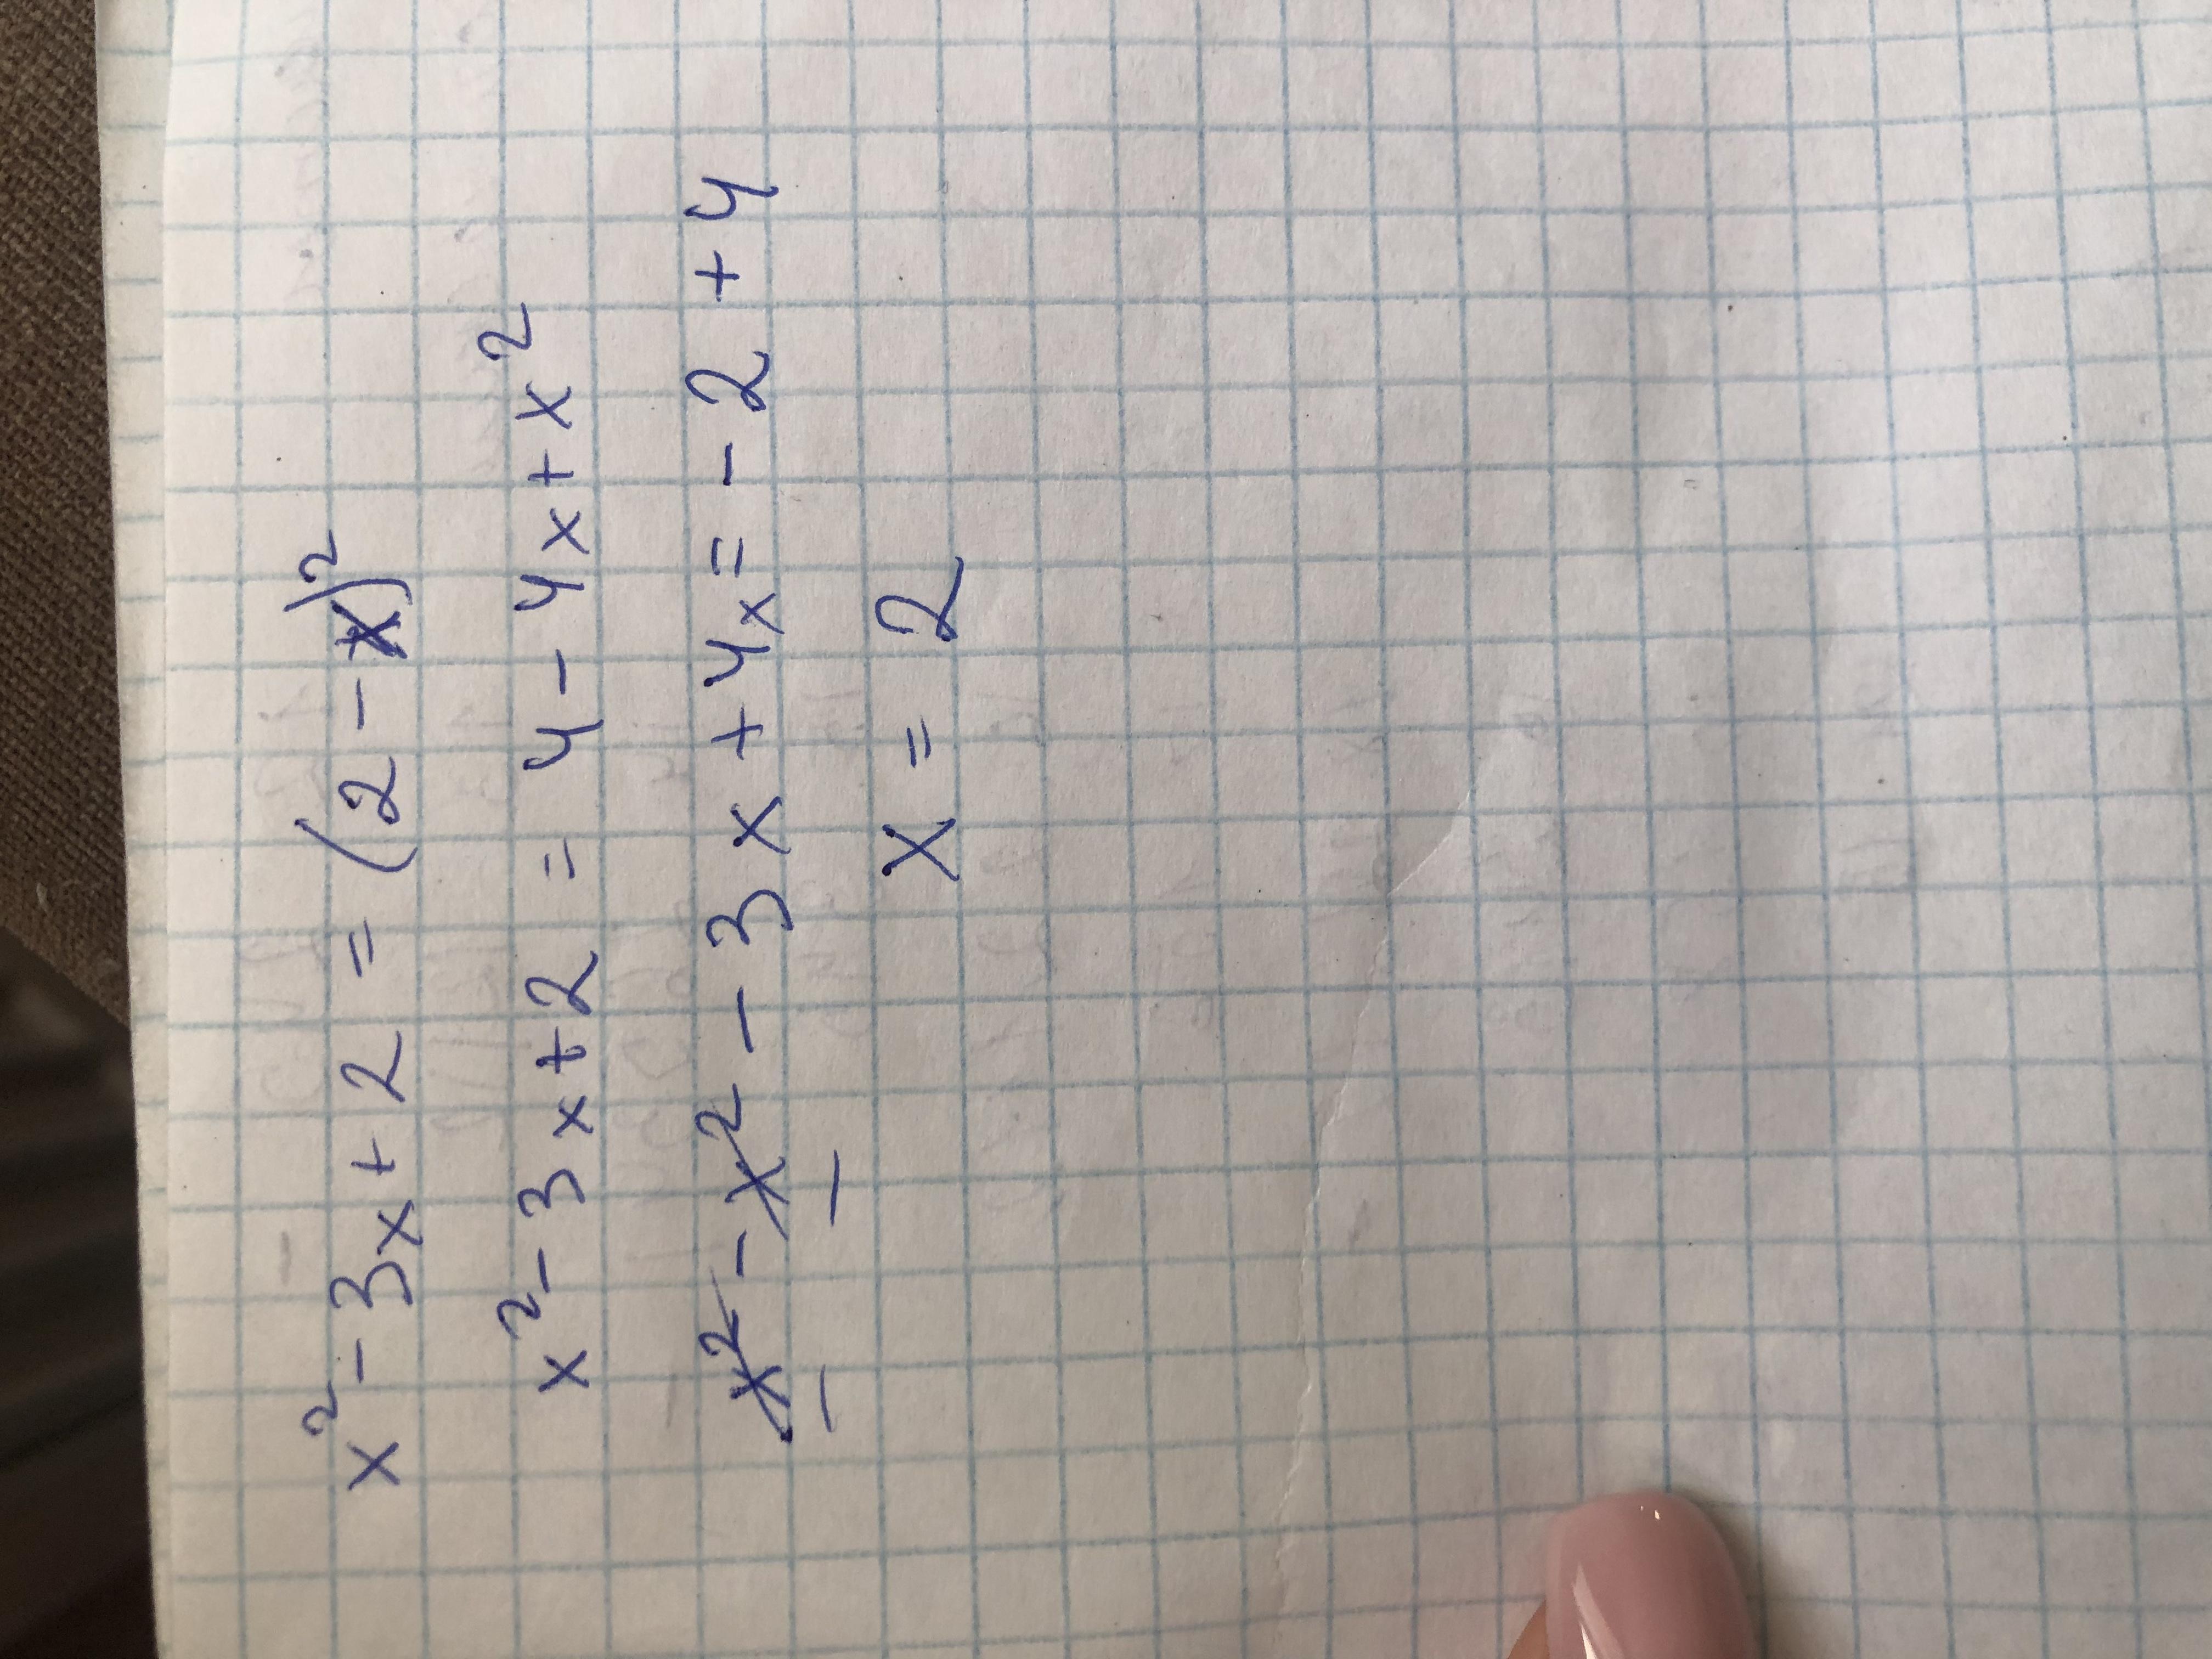 x² - 3x + 2 = (2 - x)²
x² - 3x + 2 = 4 - 4x + x²
x² - x² - 3x + 4x = - 2 + 4
x = 2